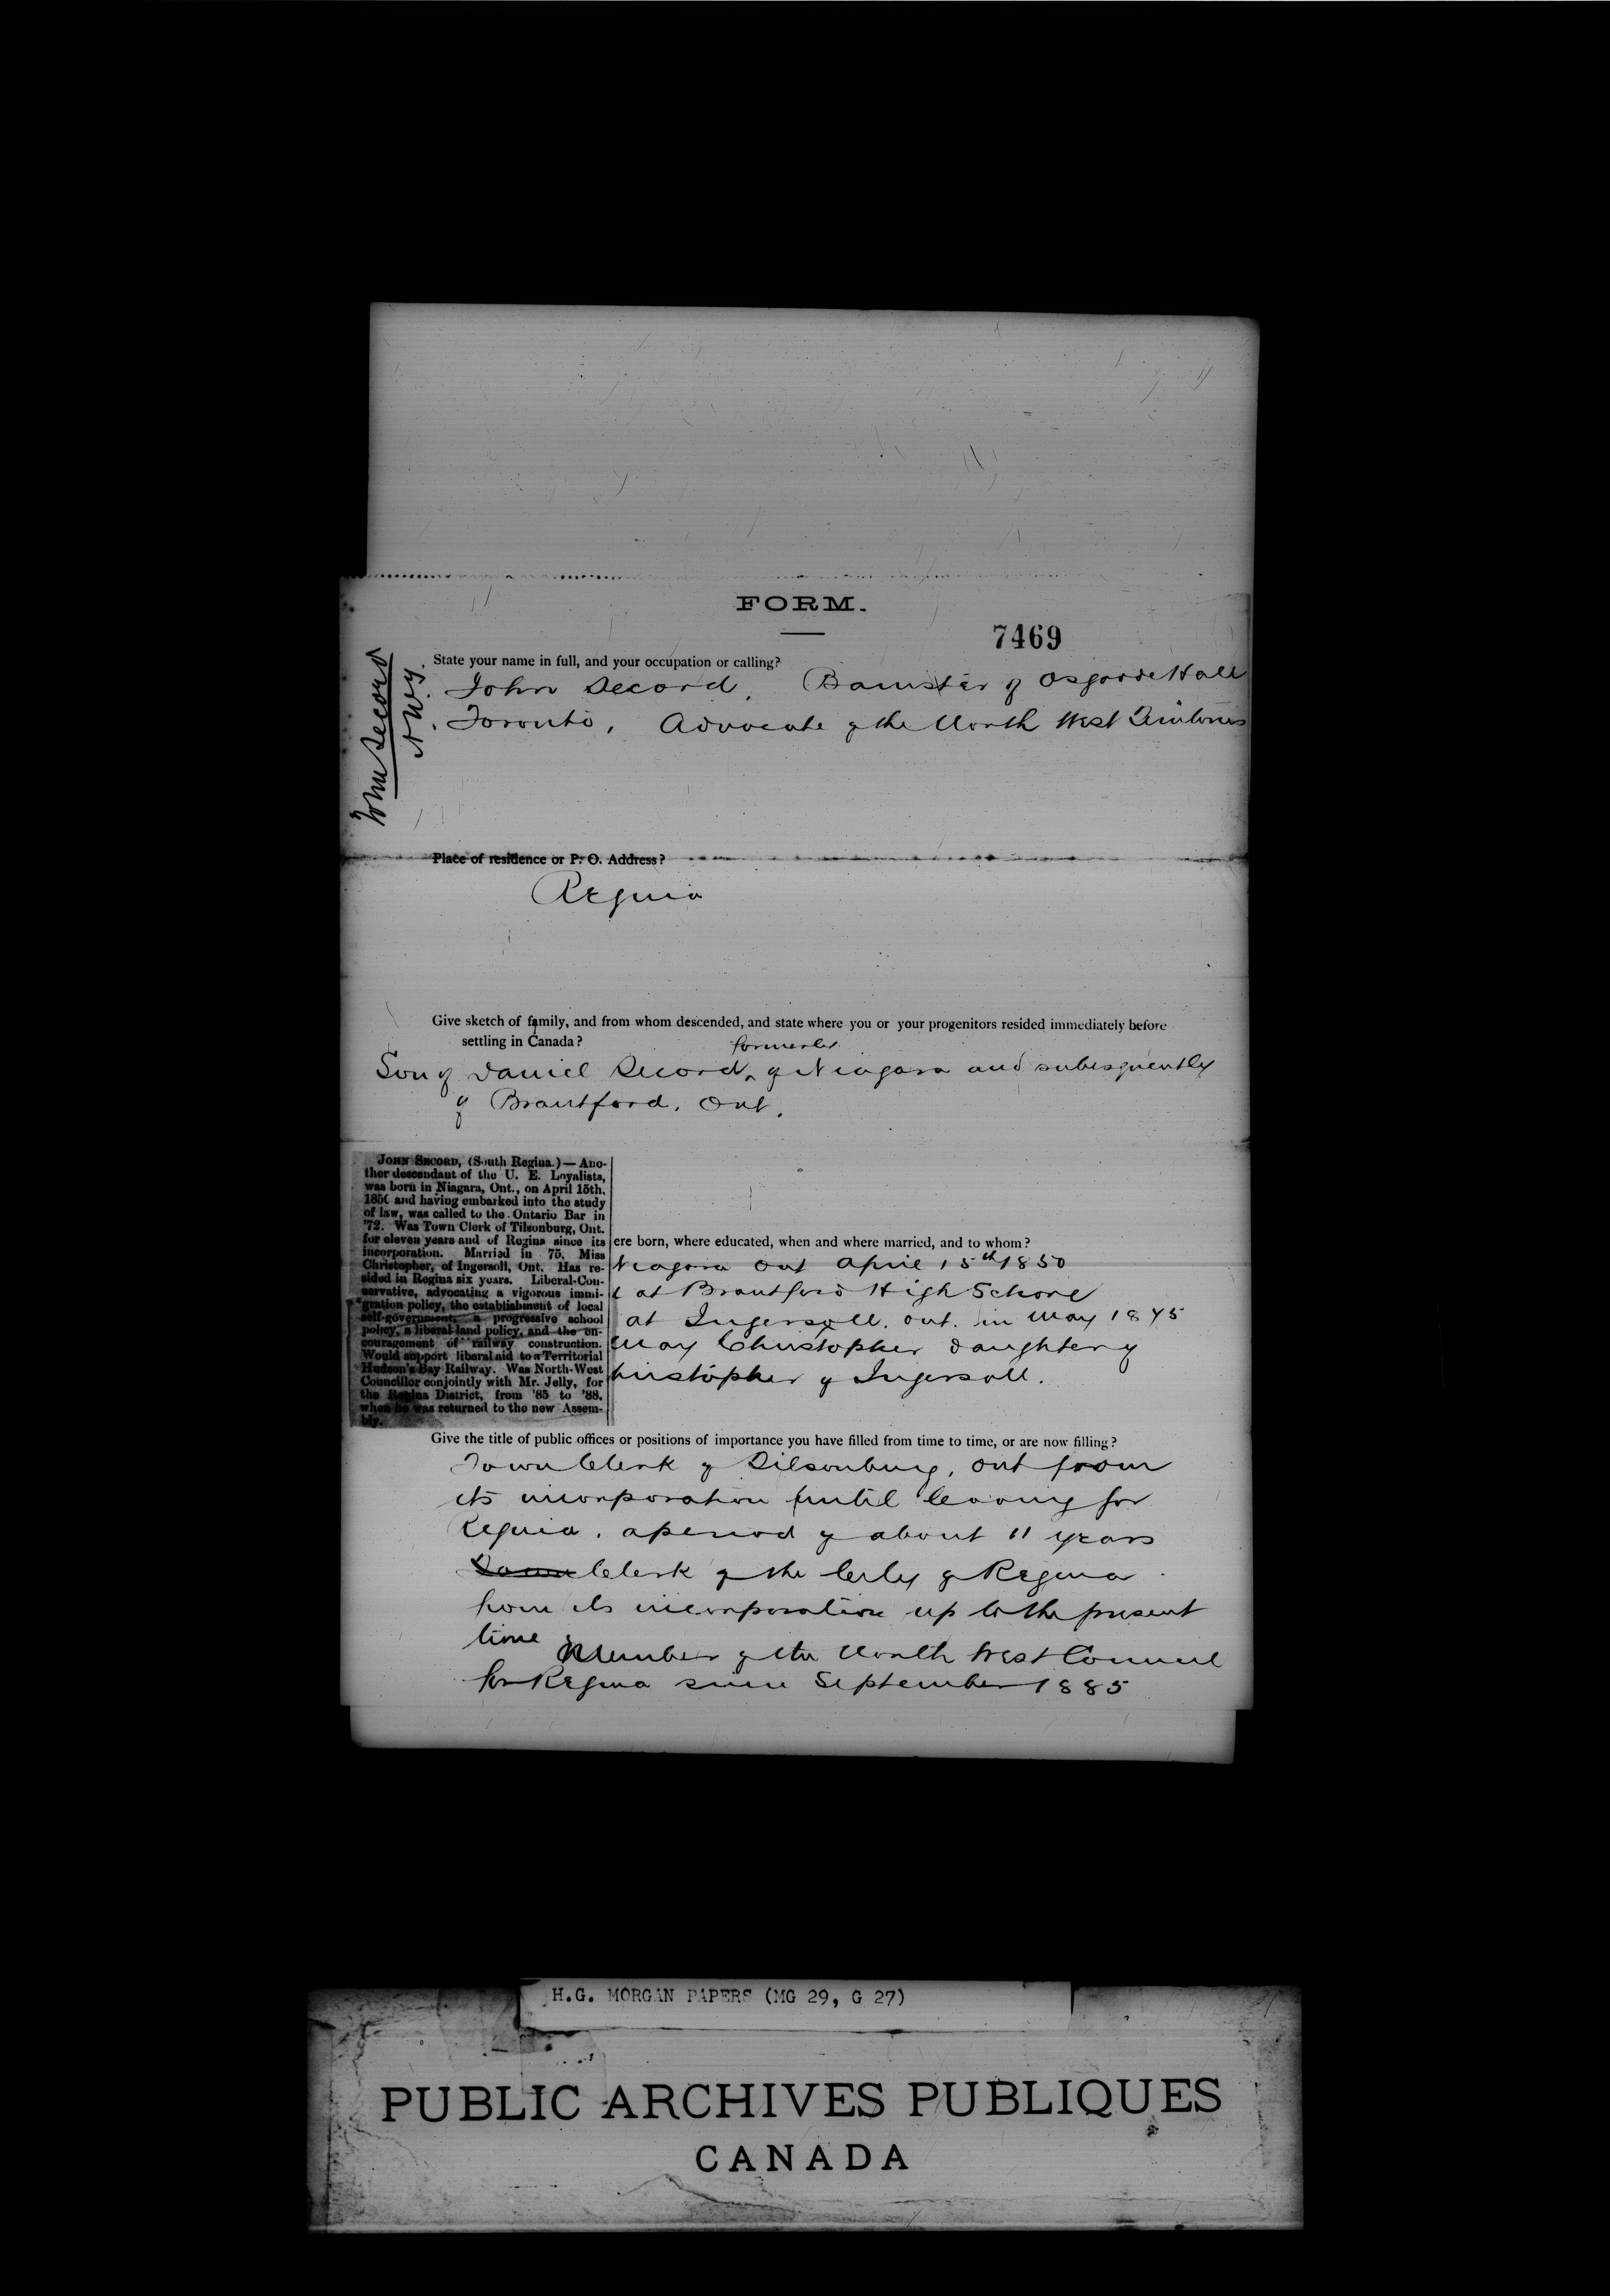 FORM.
7469
John Secord
N.W.T.
State your name in full, and your occupation or calling?
John Secord, Barrister of Osgoode Hall
Toronto, Advocate of the North West Territories
Place of residence or P. O. Address?
Regina
Give sketch of family, and from whom descended, and state where you or your progenitors resided immediately before
settling in Canada?
formerly
Son of Daniel Secord, of Niagara and subsequently
of Brantford. Ont.
JOHN SECORD, (South Regina.)—Ano-
ther descendant of the U. E. Loyalists,
was born in Niagara, Ont., on April 15th,
1850 and having embarked into the study
of law, was called to the Ontario Bar in
'72. Was Town Clerk of Tilsonburg, Ont.
for eleven years and of Regina since its
incorporation. Married in 75, Miss
Christopher, of Ingersoll, Ont. Has re-
sided in Regina six years. Liberal-Con-
servative, advocating a vigorous immi-
gration policy, the establishment of local
self-government, a progressive school
policy, a liberal land policy, and the en-
couragement of railway construction.
Would support liberal aid to a Territorial
Hudson's Bay Railway. Was North-West
Councillor conjointly with Mr. Jelly, for
the Regina District, from '85 to '88,
when he was returned to the new Assem-
bly.
ere born, where educated, when and where married, and to whom?
Niagara Ont April 15th 1850
at Brantford High School
at Ingersoll. Ont. in May 1875
May Christopher daughter of
hristopher of Ingersoll.
Give the title of public offices or positions of importance you have filled from time to time, or are now filling?
Town Clerk of Tilsonburg, Ont from
its incorporation until leaving for
Regina. a period of about 11 years
Town Clerk of the City of Regina
from its incorporation up to the present
time
Member of the North West Council
for Regina since September 1885
H.G. MORGAN PAPERS (MG 29, G 27)
PUBLIC ARCHIVES PUBLIQUES
CANADA